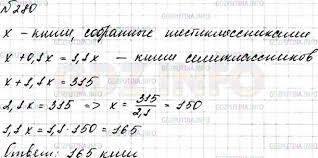 №280
x – книги, собранные шестиклассниками
x + 0,1x = 1,1x – книги семиклассников
x + 1,1x = 315
2,1x = 315 => x = 315/2,1 = 150
1,1x = 1,1·150 = 165
Ответ: 165 книг